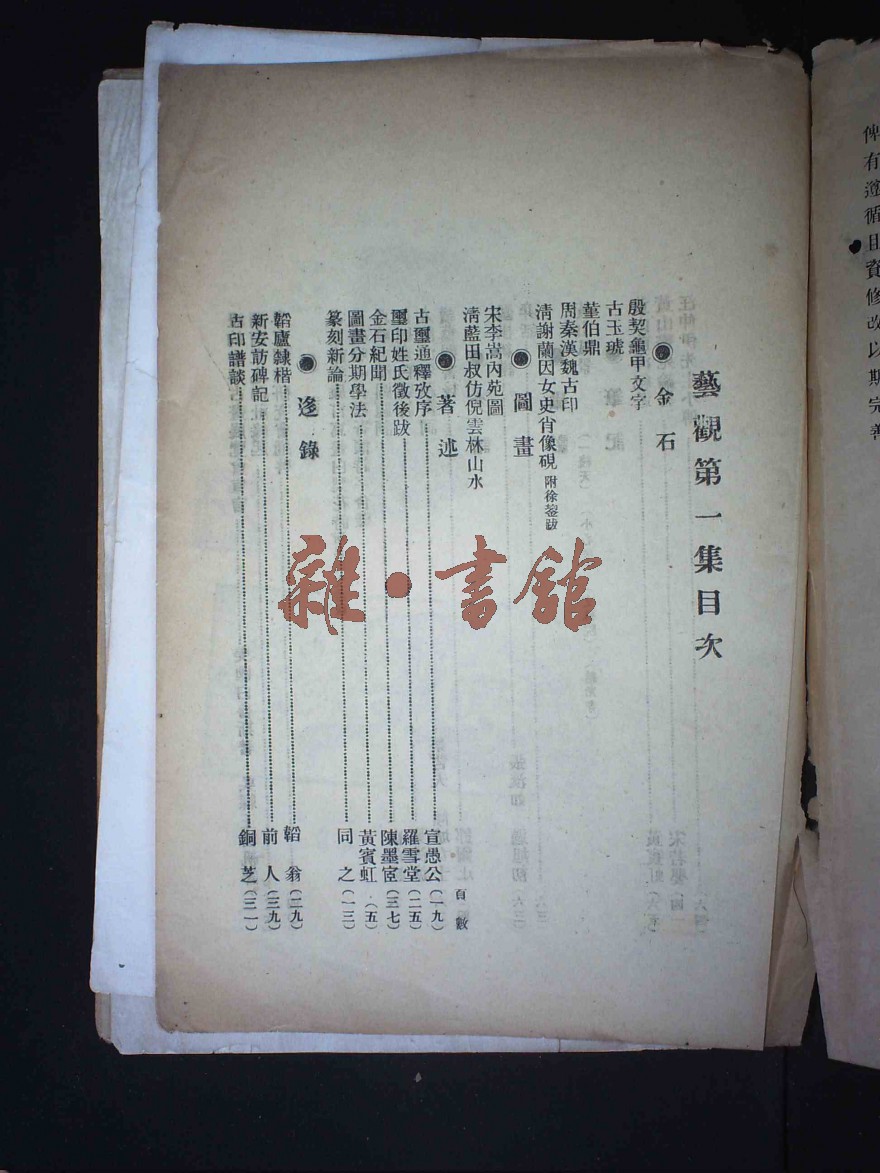 俾有
循目
修改以期完善
藝觀第一集目次
●金石
殷契龜甲文字
古玉琥
董伯鼎
周秦漢魏古印
清謝蘭因女史肖像硯 附徐鋆跋
●圖畫
宋李嵩內苑圖
清藍田叔仿倪雲林山水
●著述
頁數
古璽通釋攷序 宣愚公（一九）
璽印姓氏徵後跋 羅雪堂（二五）
金石紀聞 陳墨宧（三七）
圖畫分期學法 黃賓虹（五）
篆刻新論 同之（一三）
●迻錄
韜廬隸楷 韜翁（二九）
新安訪碑記 前人（三九）
古印譜談 銅芝（三一）
雜·書館